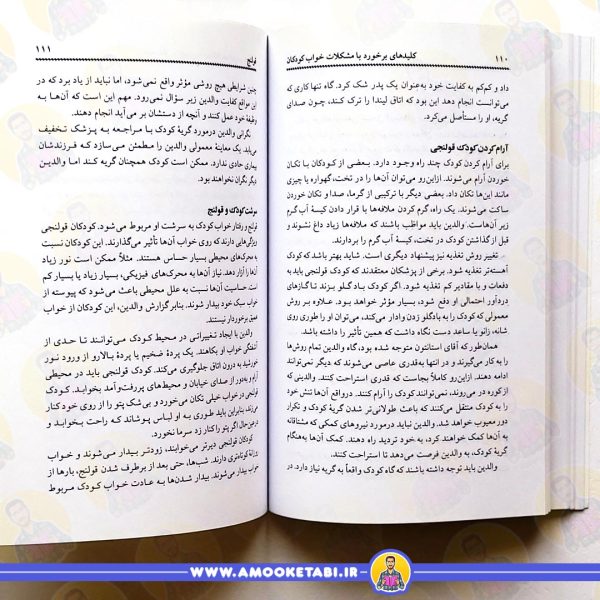 ۱۱۰ کلیدهای برخورد با مشکلات خواب کودکان
داد و کم‌کم به کفایت خود به‌عنوان یک پدر شک کرد. گاه تنها کاری که
می‌توانست انجام دهد این بود که اتاق لیندا را ترک کند، چون صدای
گریه، او را مستأصل می‌کرد.
آرام کردن کودک قولنجی
برای آرام کردن کودک چند راه وجود دارد. بعضی از کودکان با تکان
خوردن آرام می‌شوند. ازاین‌رو می‌توان آن‌ها را در تخت، گهواره یا چیزی
مانند این‌ها تکان داد. بعضی دیگر با ترکیبی از گرما، صدا و تکان خوردن
ساکت می‌شوند. یک راه، گرم کردن ملافه‌ها با قرار دادن کیسهٔ آب گرم
زیر آن‌هاست. والدین باید مواظب باشند که ملافه‌ها زیاد داغ نشوند و
قبل از گذاشتن کودک در تخت، کیسهٔ آب گرم را بردارند.
تغییر روش تغذیه نیز پیشنهاد دیگری است. شاید بهتر باشد که کودک
آهسته‌تر تغذیه شود. برخی از پزشکان معتقدند که کودک قولنجی باید به
دفعات و با مقادیر کم تغذیه شود. اگر کودک باد گلو بزند تا گازهای
دردآور احتمالی او دفع شود، بسیار مؤثر خواهد بود. علاوه بر روش
معمولی که کودک را به بادگلو زدن وادار می‌کند، می‌توان او را طوری روی
شانه، زانو یا ساعد دست نگاه داشت که همین تأثیر را داشته باشد.
همان‌طور که آقای استانتون متوجه شده بود، گاه والدین تمام روش‌ها
را به کار می‌گیرند و در انتها به‌قدری عاصی می‌شوند که دیگر نمی‌توانند
ادامه دهند. ازاین‌رو کاملاً بجاست که قدری استراحت کنند. والدینی که
از کوره در می‌روند، نمی‌توانند کودک را آرام کنند. درواقع آن‌ها تنش خود
را به کودک منتقل می‌کنند که باعث طولانی‌تر شدن گریهٔ کودک و تکرار
دور معیوب خواهد شد. والدین نباید درمورد نیروهای کمکی که مشتاقانه
به آن‌ها کمک خواهند کرد، به خود تردید راه دهند. کمک آن‌ها به‌هنگام
گریهٔ کودک، به والدین فرصت می‌دهد تا استراحت کنند.
والدین باید توجه داشته باشند که گاه کودک واقعاً به گریه نیاز دارد. در
قولنج ۱۱۱
چنین شرایطی هیچ روشی مؤثر واقع نمی‌شود، اما نباید از یاد برد که در
این مواقع کفایت والدین زیر سؤال نمی‌رود. مهم این است که آن‌ها به
وظیفهٔ خود عمل کنند و آنچه از دستشان بر می‌آید انجام دهند.
نگرانی والدین درمورد گریهٔ کودک با مراجعه به پزشک تخفیف
می‌یابد. یک معاینهٔ معمولی والدین را مطمئن می‌سازد که فرزندشان
بیماری جادی ندارد. ممکن است کودک همچنان گریه کند اما والدین
دیگر نگران نخواهند بود.
سرشت کودک و قولنج
قولنج و رفتار خواب کودک به سرشت او مربوط می‌شود. کودکان قولنجی
ویژگی‌هایی دارند که روی خواب آن‌ها تأثیر می‌گذارند. این کودکان نسبت
به محرک‌های محیط بسیار حساس هستند. مثلاً ممکن است نور زیاد
آن‌ها را آزار دهد. نیاز آن‌ها به محرک‌های فیزیکی، بسیار زیاد یا بسیار کم
است. حساسیت آن‌ها نسبت به علل محیطی باعث می‌شود که پیوسته از
خواب سبک خود بیدار شوند. بنابر گزارش والدین، این کودکان از خواب
عمیق برخوردار نیستند.
والدین با ایجاد تغییراتی در محیط کودک می‌توانند تا حدی از
آشفتگی خواب او بکاهند. یک پردهٔ ضخیم یا پردهٔ بالارو از ورود نور
خورشید به درون اتاق جلوگیری می‌کند. کودک قولنجی باید در محیطی
آرام و به‌دور از صدای خیابان و محیط‌های پررفت‌وآمد بخوابد. کودک
قولنجی در خواب خیلی تکان می‌خورد و بی‌شک پتو را از روی خود کنار
می‌زند، بنابراین باید طوری به او لباس پوشاند که راحت بخوابد و
درعین‌حال اگر پتو را کنار زد سرما نخورد.
کودکان قولنجی دیرتر می‌خوابند، زودتر بیدار می‌شوند و خواب
روزانهٔ کوتاه‌تری دارند. شب‌ها، حتی بعد از برطرف شدن قولنج، بارها از
خواب بیدار می‌شوند. بیدار شدن‌ها به عادت خواب کودک مربوط
WWW.AMOOKETABI.IR